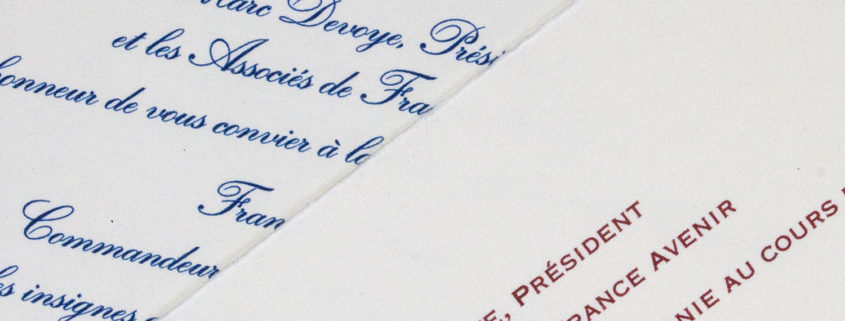 Marc Devoye, Prési
et les Associés de Fra
onneur de vous convier à la
Fran
Commandeur
les insignes
E, PRÉSIDENT
RANCE AVENIR
NIE AU COURS